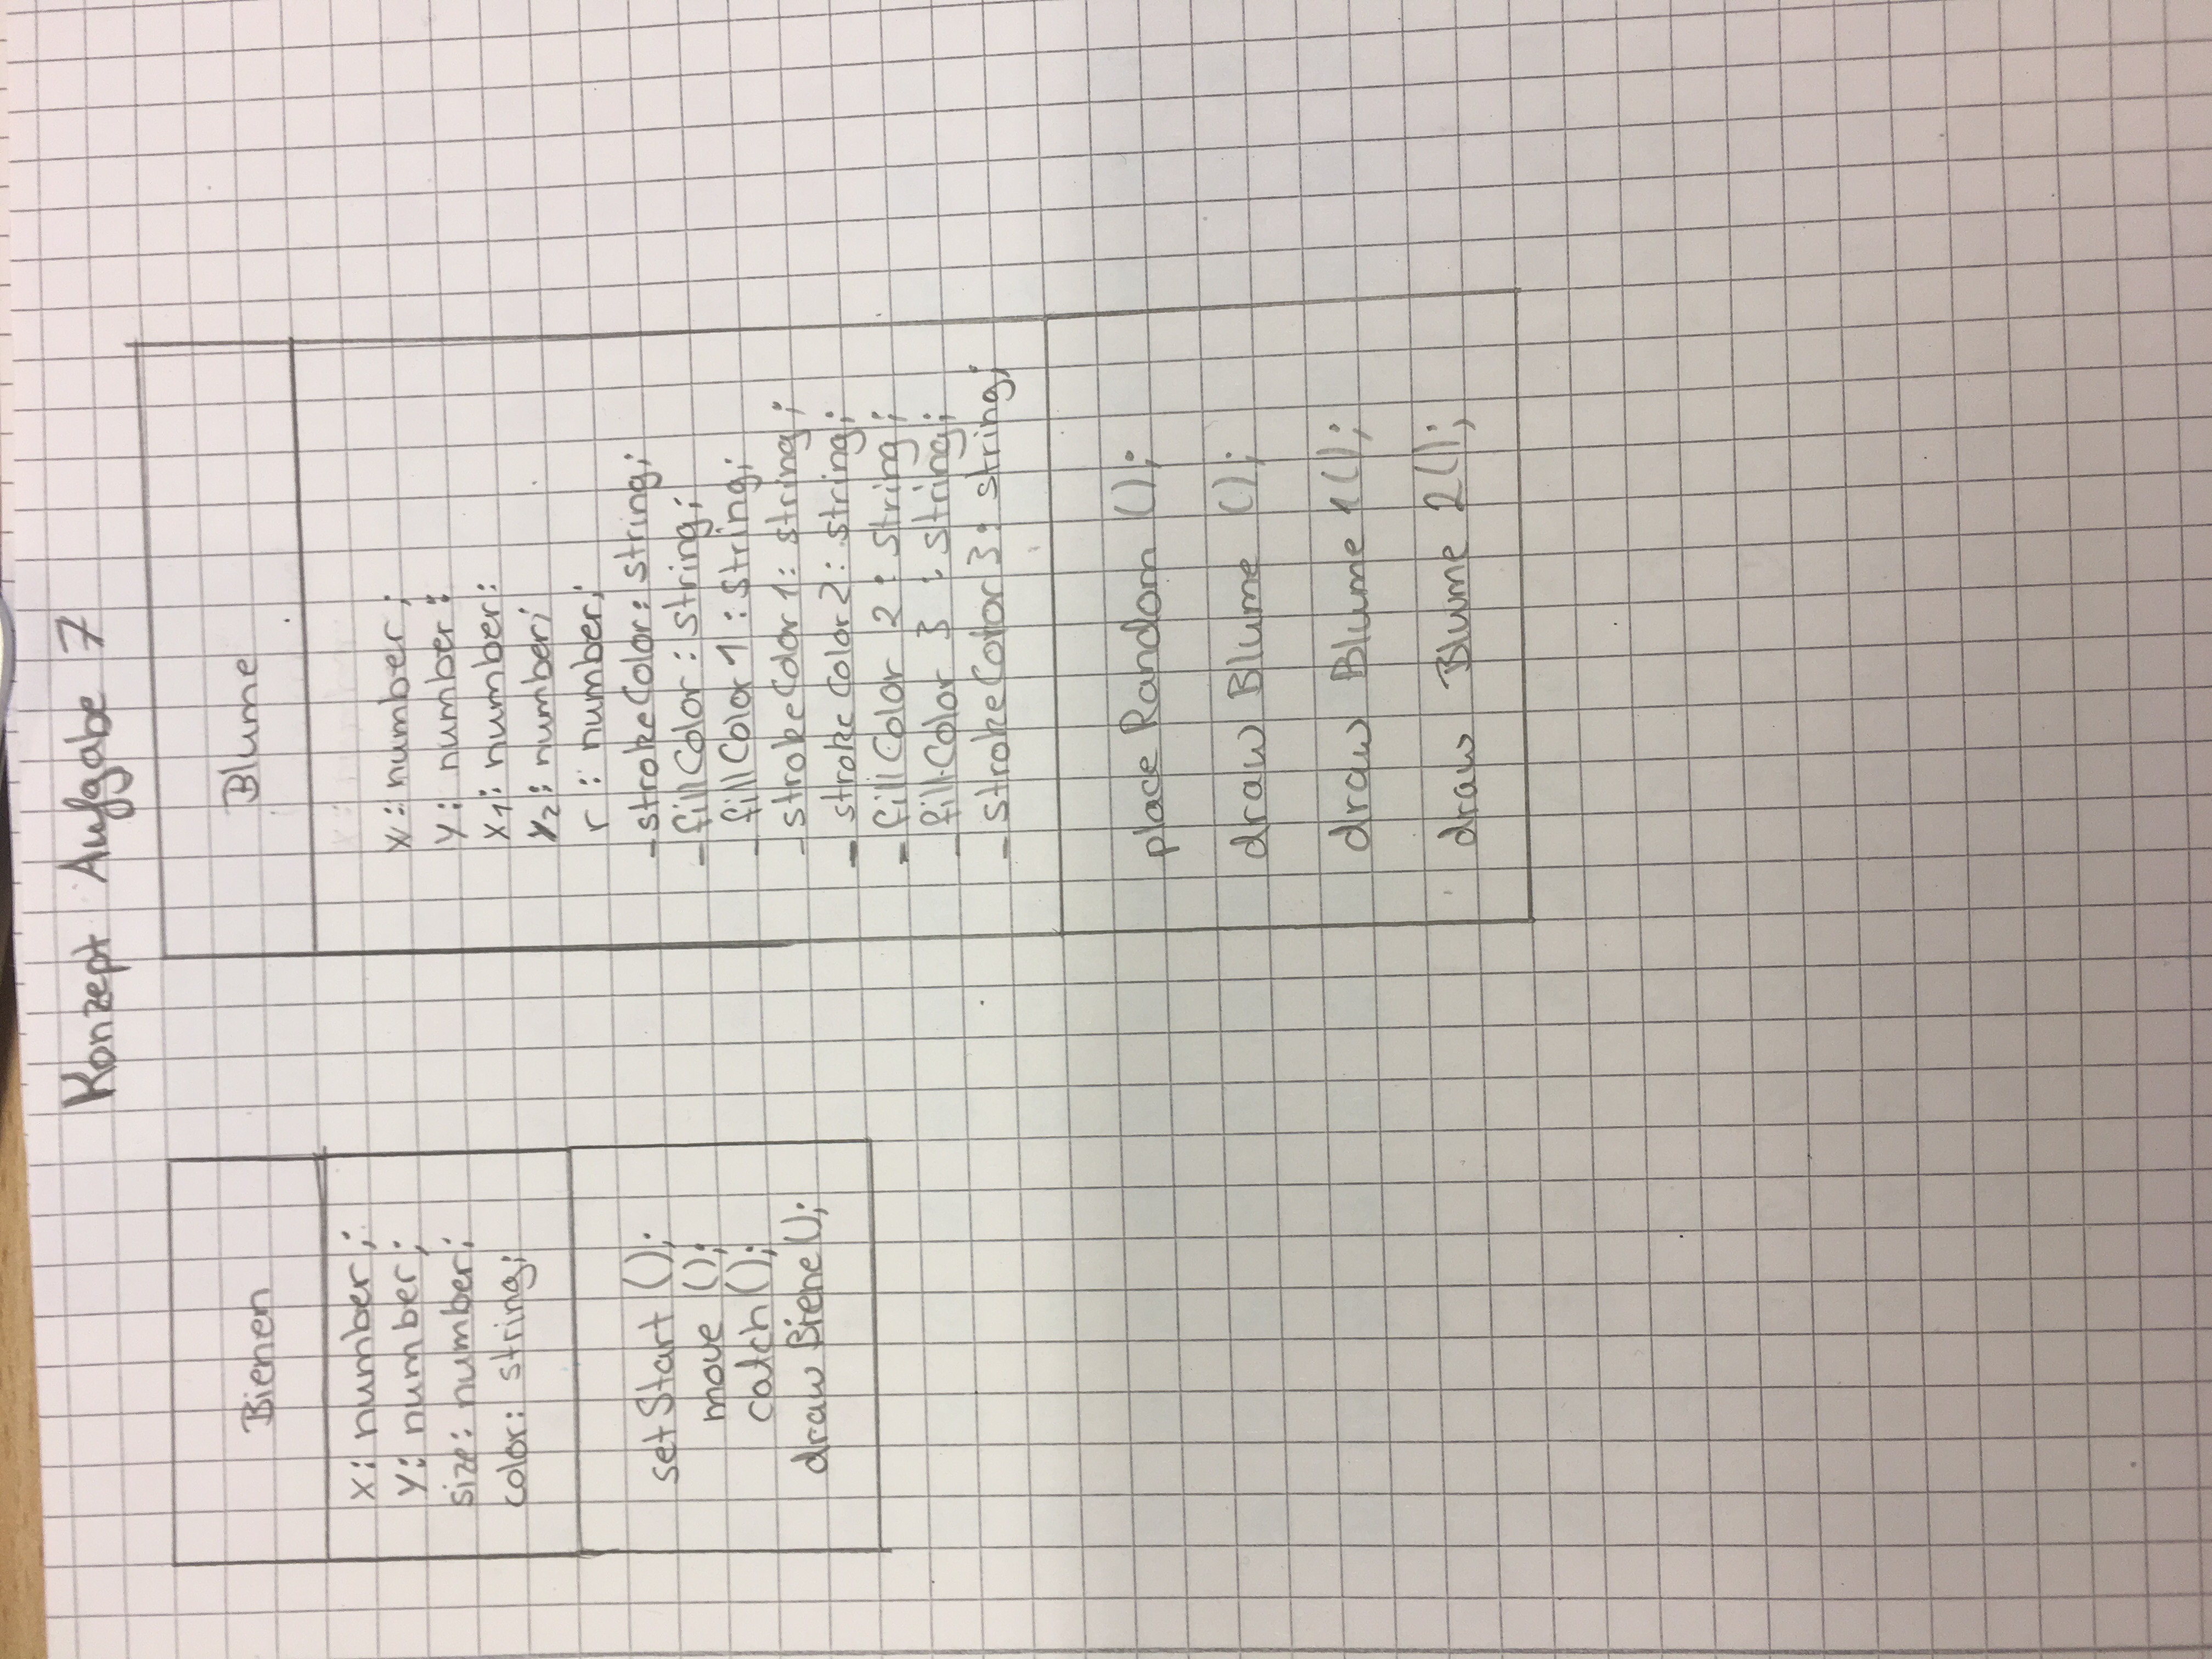 Konzept Aufgabe 7
Bienen
x: number;
y: number;
size: number;
color: string;
setStart ();
move ();
catch ();
draw Biene ();
Blume
x: number;
y: number:
x1: number:
y2: number;
r : number;
_strokeColor: string;
_fillColor: string;
_fillColor 1: string;
_strokeColor 1: string;
_strokeColor 2: string;
_fillColor 2: string;
_fillColor 3: string;
_strokeColor 3: string;
place Random ();
draw Blume ();
draw Blume 1();
draw Blume 2();